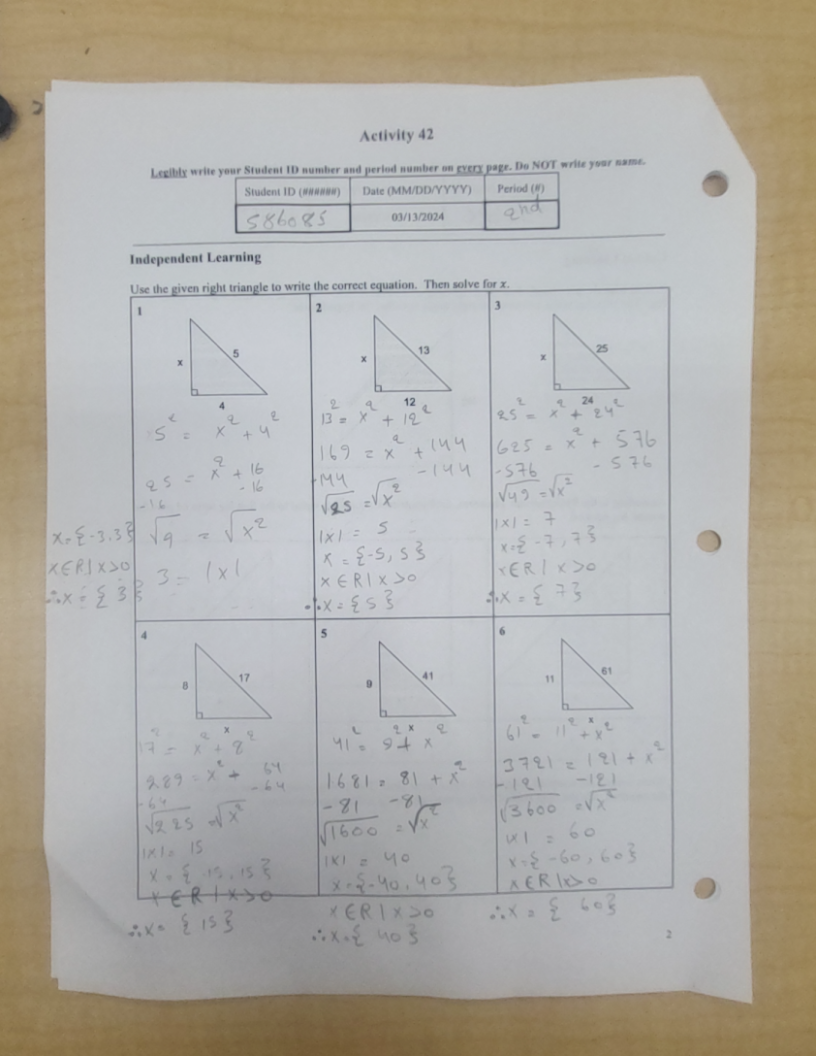 Activity 42
Legibly write your Student ID number and period number on every page. Do NOT write your name.
Student ID (######) Date (MM/DD/YYYY) Period (#)
586085 03/13/2024 2nd
Independent Learning
Use the given right triangle to write the correct equation. Then solve for x.
1
x 5
4
5² = x² + 4²
25 = x² + 16
-16 -16
√9 = √x²
3 = |x|
x = {-3,3}
x∈R|x>0
∴x = {3}
2
x 13
12
13² = x² + 12²
169 = x² + 144
-144 -144
√25 = √x²
|x| = 5
x = {-5, 5}
x∈R|x>0
∴x = {5}
3
x 25
24
25² = x² + 24²
625 = x² + 576
-576 -576
√49 = √x²
|x| = 7
x = {-7, 7}
x∈R|x>0
∴x = {7}
4
8 17
x
17² = x² + 8²
289 = x² + 64
-64 -64
√225 = √x²
|x| = 15
x = {-15, 15}
x∈R|x>0
∴x = {15}
5
9 41
x
41² = 9² + x²
1681 = 81 + x²
-81 -81
√1600 = √x²
|x| = 40
x = {-40, 40}
x∈R|x>0
∴x = {40}
6
11 61
x
61² = 11² + x²
3721 = 121 + x²
-121 -121
√3600 = √x²
|x| = 60
x = {-60, 60}
x∈R|x>0
∴x = {60}
2